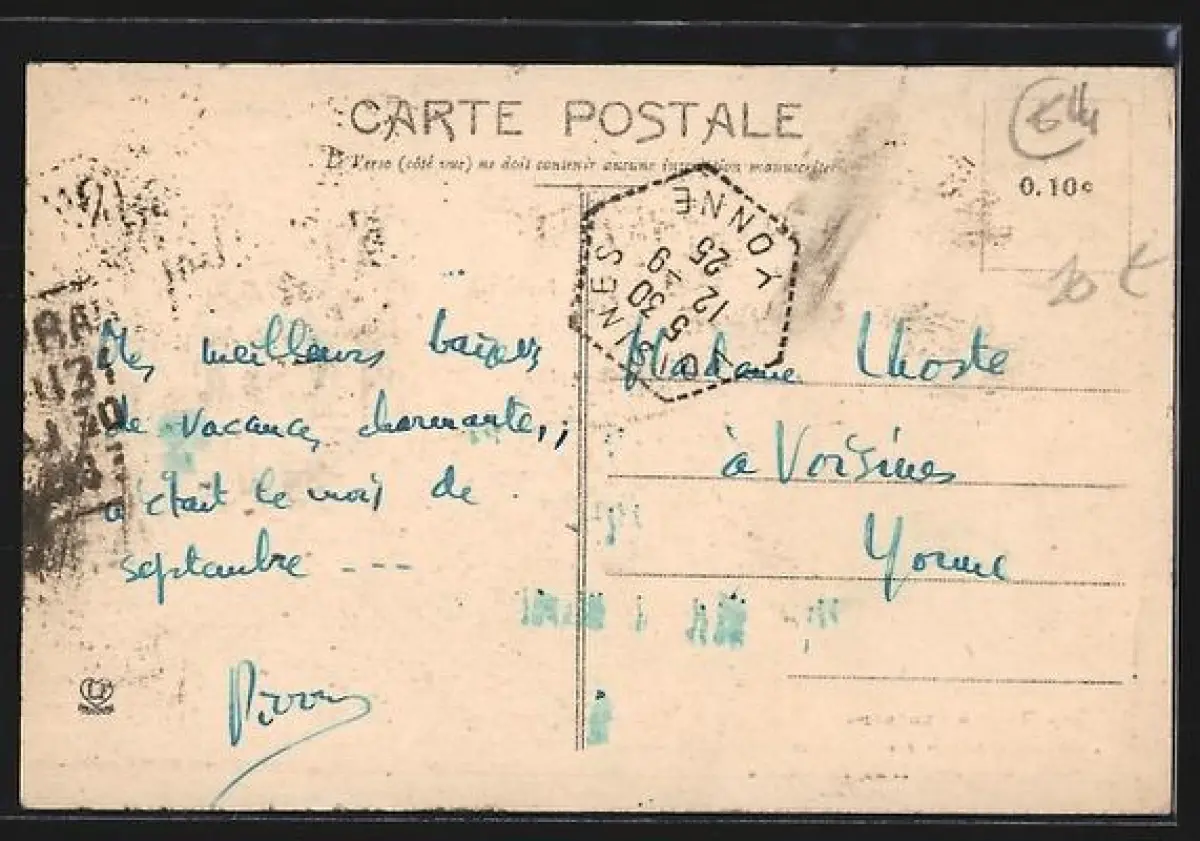 CARTE POSTALE
Le Verso (côté vue) ne doit contenir aucune inscription manuscrite
0.10c
VOISINES YONNE
12 25
5
30
Mes meilleurs baisers
de vacances charmantes,
c'était le mois de
septembre ---
Pierre
Madame Lhoste
à Voisines
Yonne